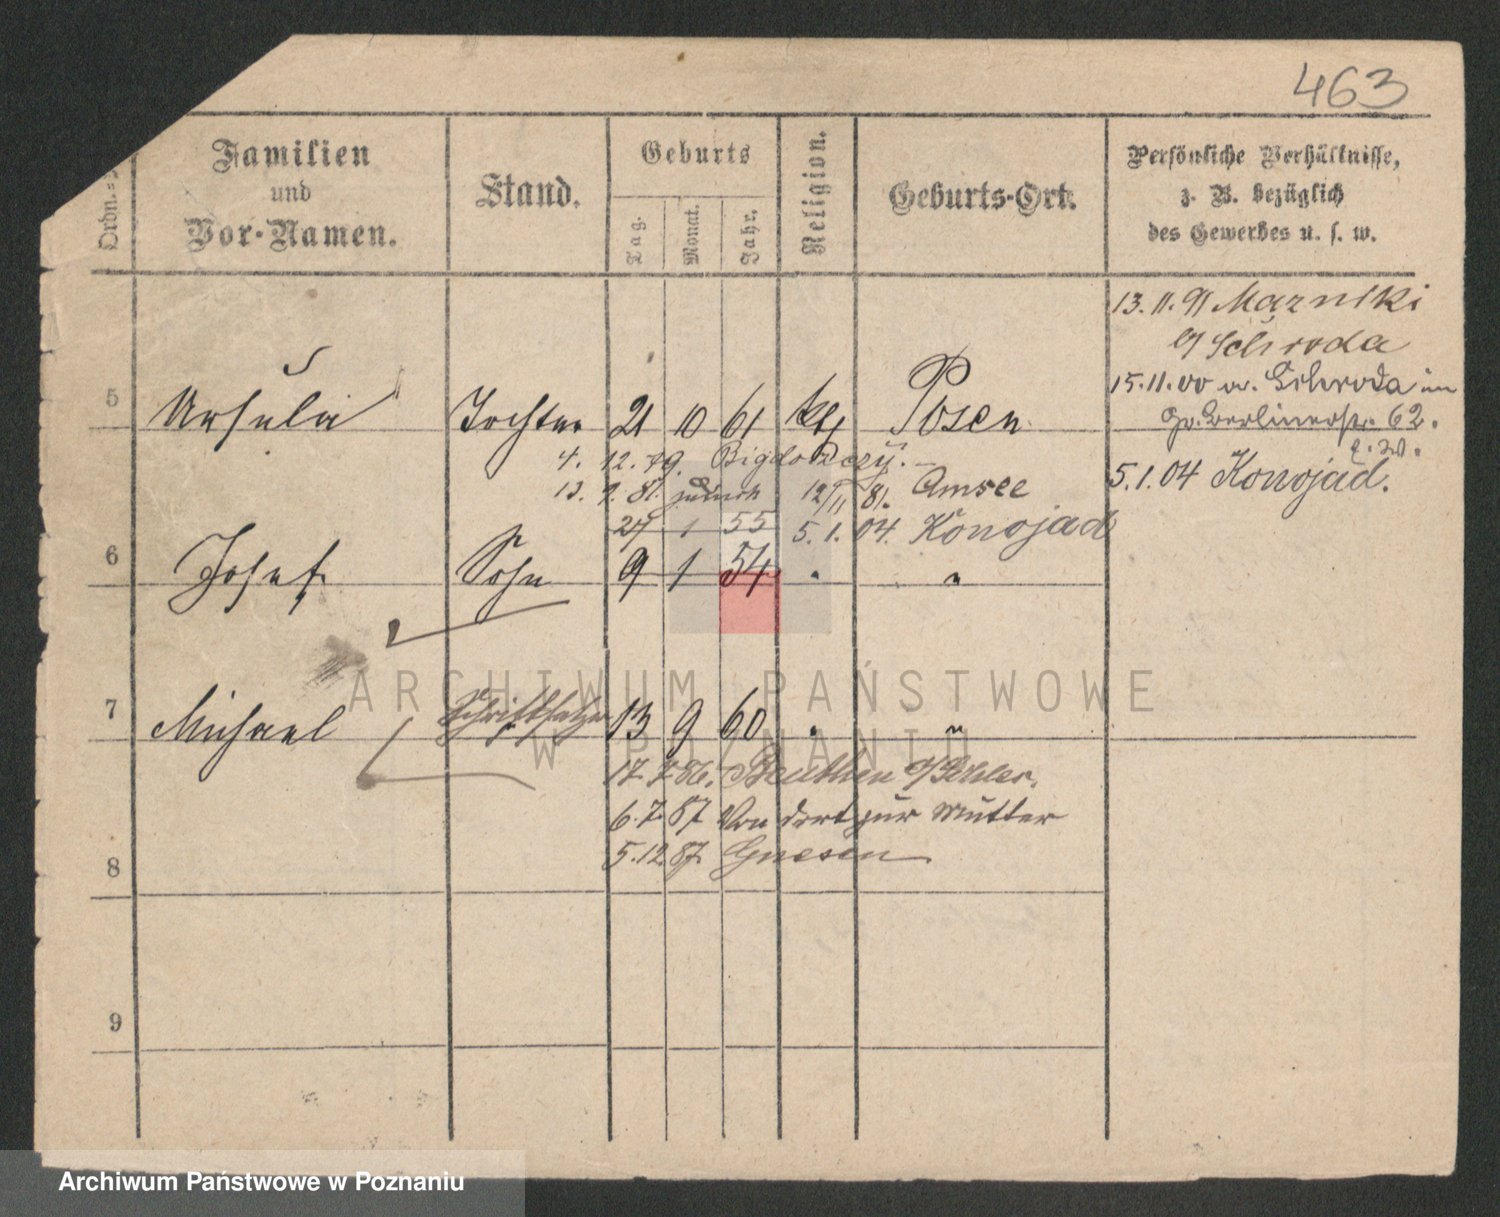 463
Ordn.=
Familien
und
Vor-Namen.
Stand.
Geburts
Tag. Monat. Jahr.
Religion.
Geburts-Ort.
Persönliche Verhältnisse,
z. B. bezüglich
des Gewerbes u. s. w.
13. 11. 91
b/ Schroda
15.11.00 v. Schroda in
Gr. Berlinerstr. 62.
5.1.04 Konojad.
5 Ursula Tochter 21 10 61 kth Posen
4. 12. 79.
13. 9. 81. zurück 12/11 81. Amsee
27 1 55 5. 1. 04. Konojad
6 Josef Sohn 9 1 54 " "
7 Michael Schriftsetzer 13 9 60 " "
17.7.86. Beuthen o/Schles.
6.7.87 Von dort zur Mutter
5.12.87. Gnesen
8
9
ARCHIWUM PAŃSTWOWE
W POZNANIU
Archiwum Państwowe w Poznaniu